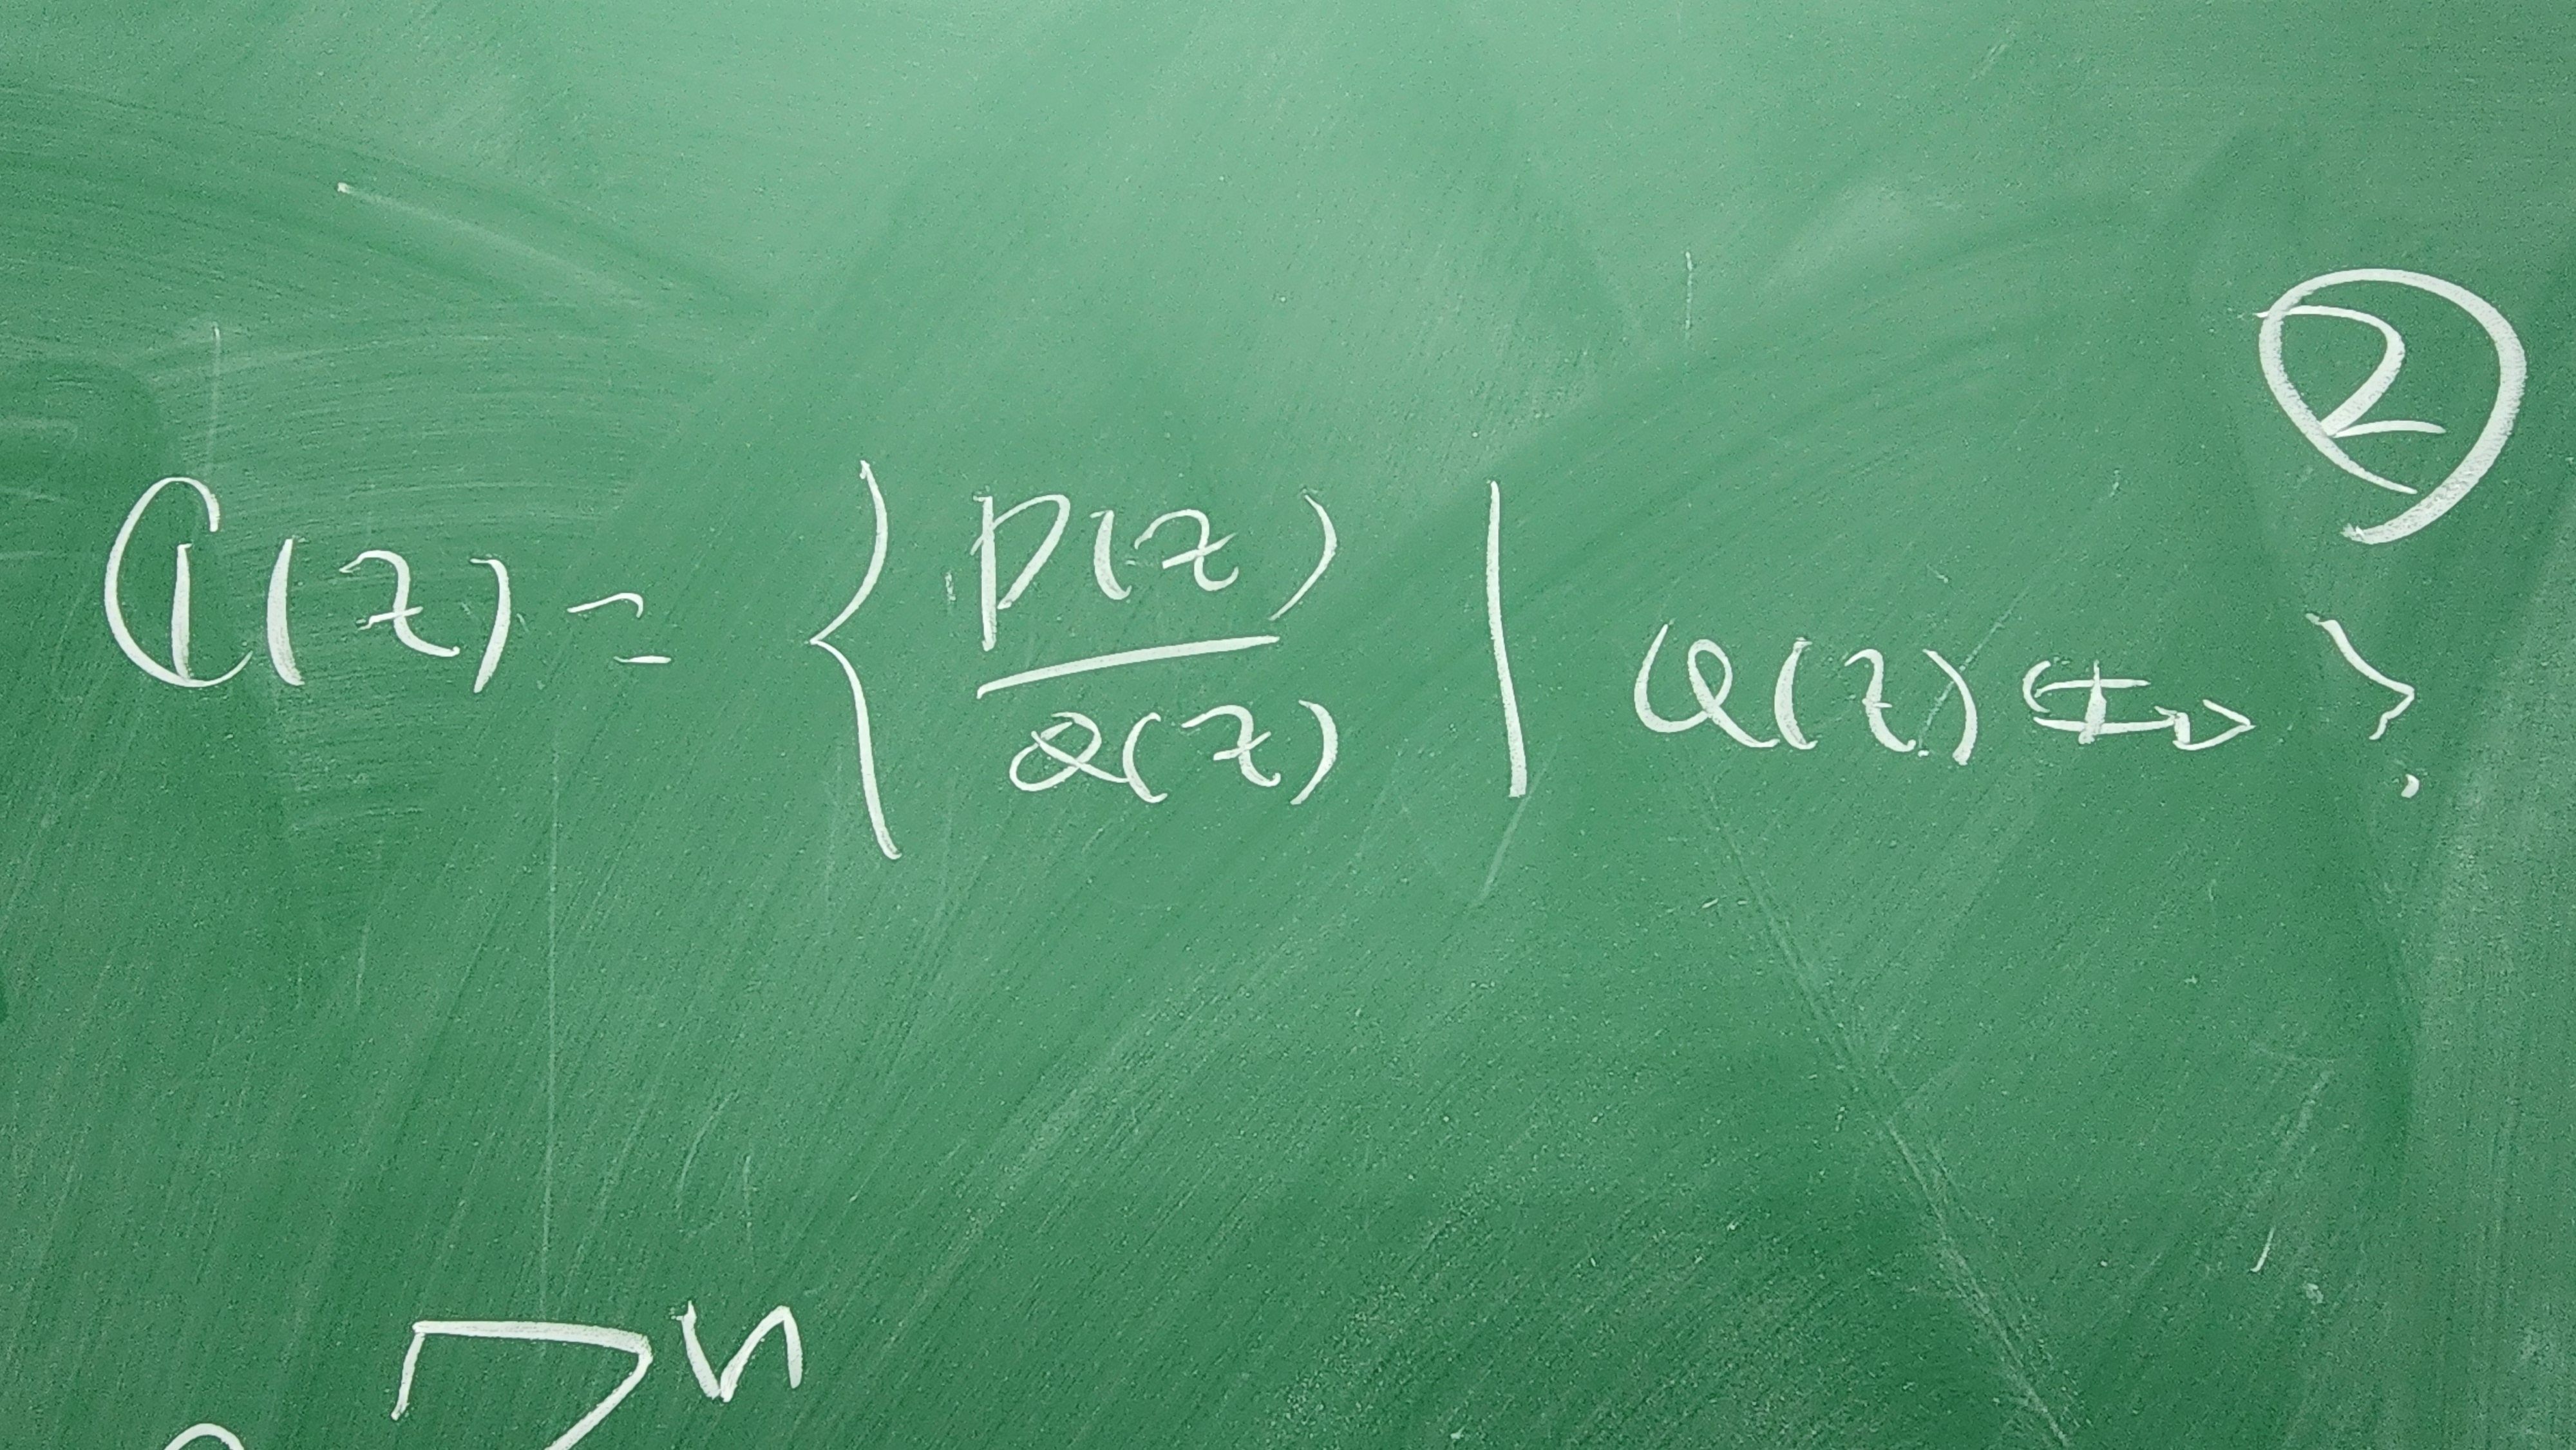 ②
ℂ(z) = { P(z) / Q(z) | Q(z) ≠ 0 }.